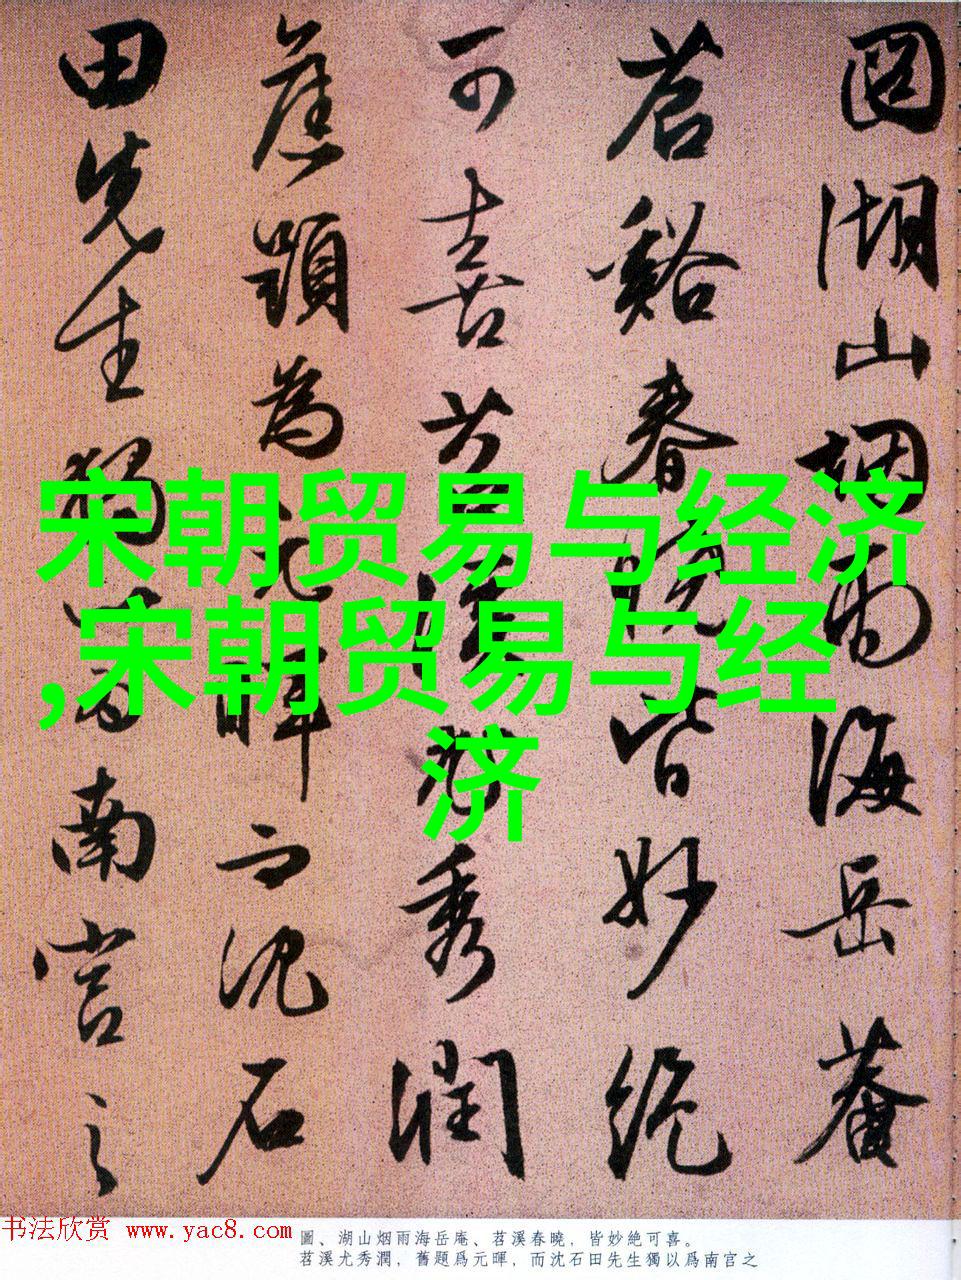 圖湖山烟雨海岳菴
苕谿春曉皆妙絶
可喜苕溪尤秀潤
舊題為元暉而沈石
田先生獨以為南宮之
宋朝贸易与经济
,宋朝贸易与经
济
书法欣赏 www.yac8.com
圖、湖山烟雨海岳庵、苕溪春曉，皆妙絶可喜。
苕溪尤秀潤，舊題爲元暉，而沈石田先生獨以爲南宫之